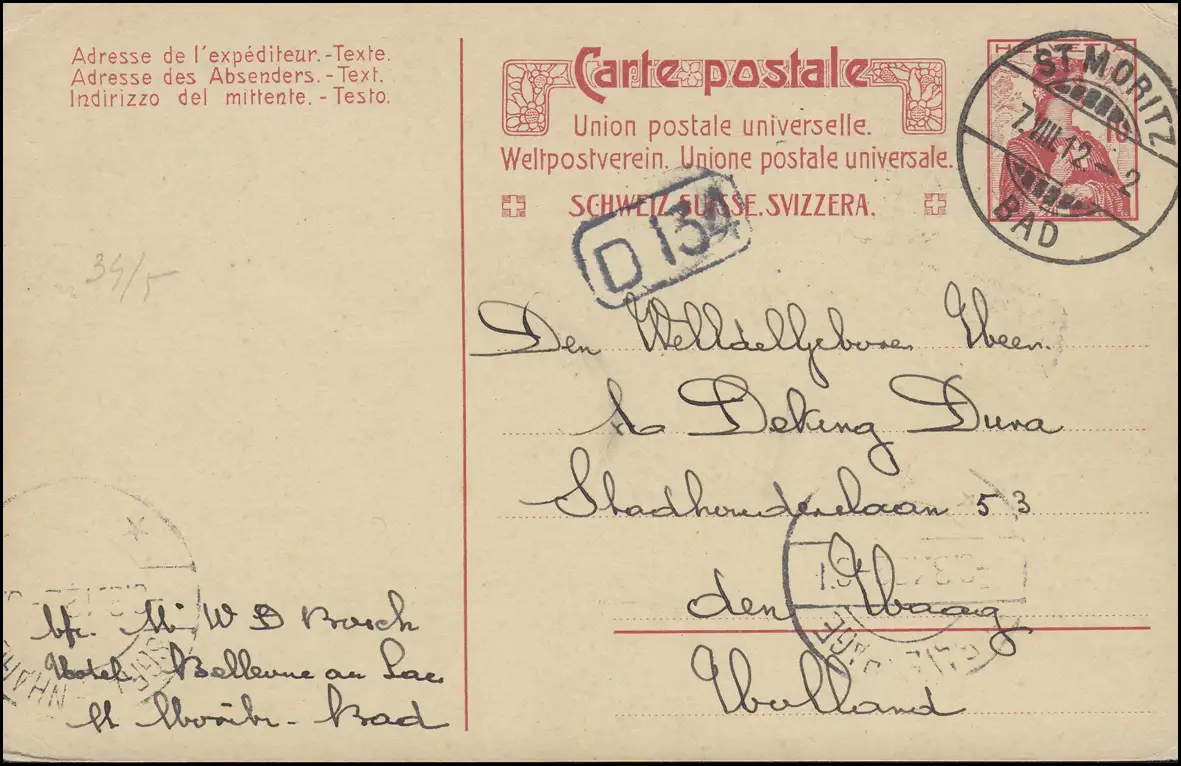 Adresse de l'expéditeur.-Texte.
Adresse des Absenders.-Text.
Indirizzo del mittente.-Testo.
Carte postale
Union postale universelle.
Weltpostverein. Unione postale universale.
SCHWEIZ.SUISSE.SVIZZERA.
HELVETIA
10
ST. MORITZ
7.VIII.12–2
BAD
D 134
34/5
Den WellEdelGeboren Heer
Deking Dura
Stadhouderslaan 53
den Haag
Holland
W D Bosch
Hotel Bellevue au Lac
St Moritz - Bad